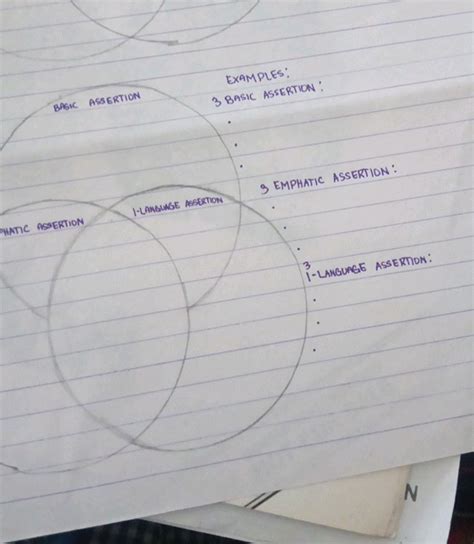 EXAMPLES:
3 BASIC ASSERTION:
BASIC ASSERTION
3 EMPHATIC ASSERTION:
I-LANGUAGE ASSERTION
PHATIC ASSERTION
3
I-LANGUAGE ASSERTION:
N